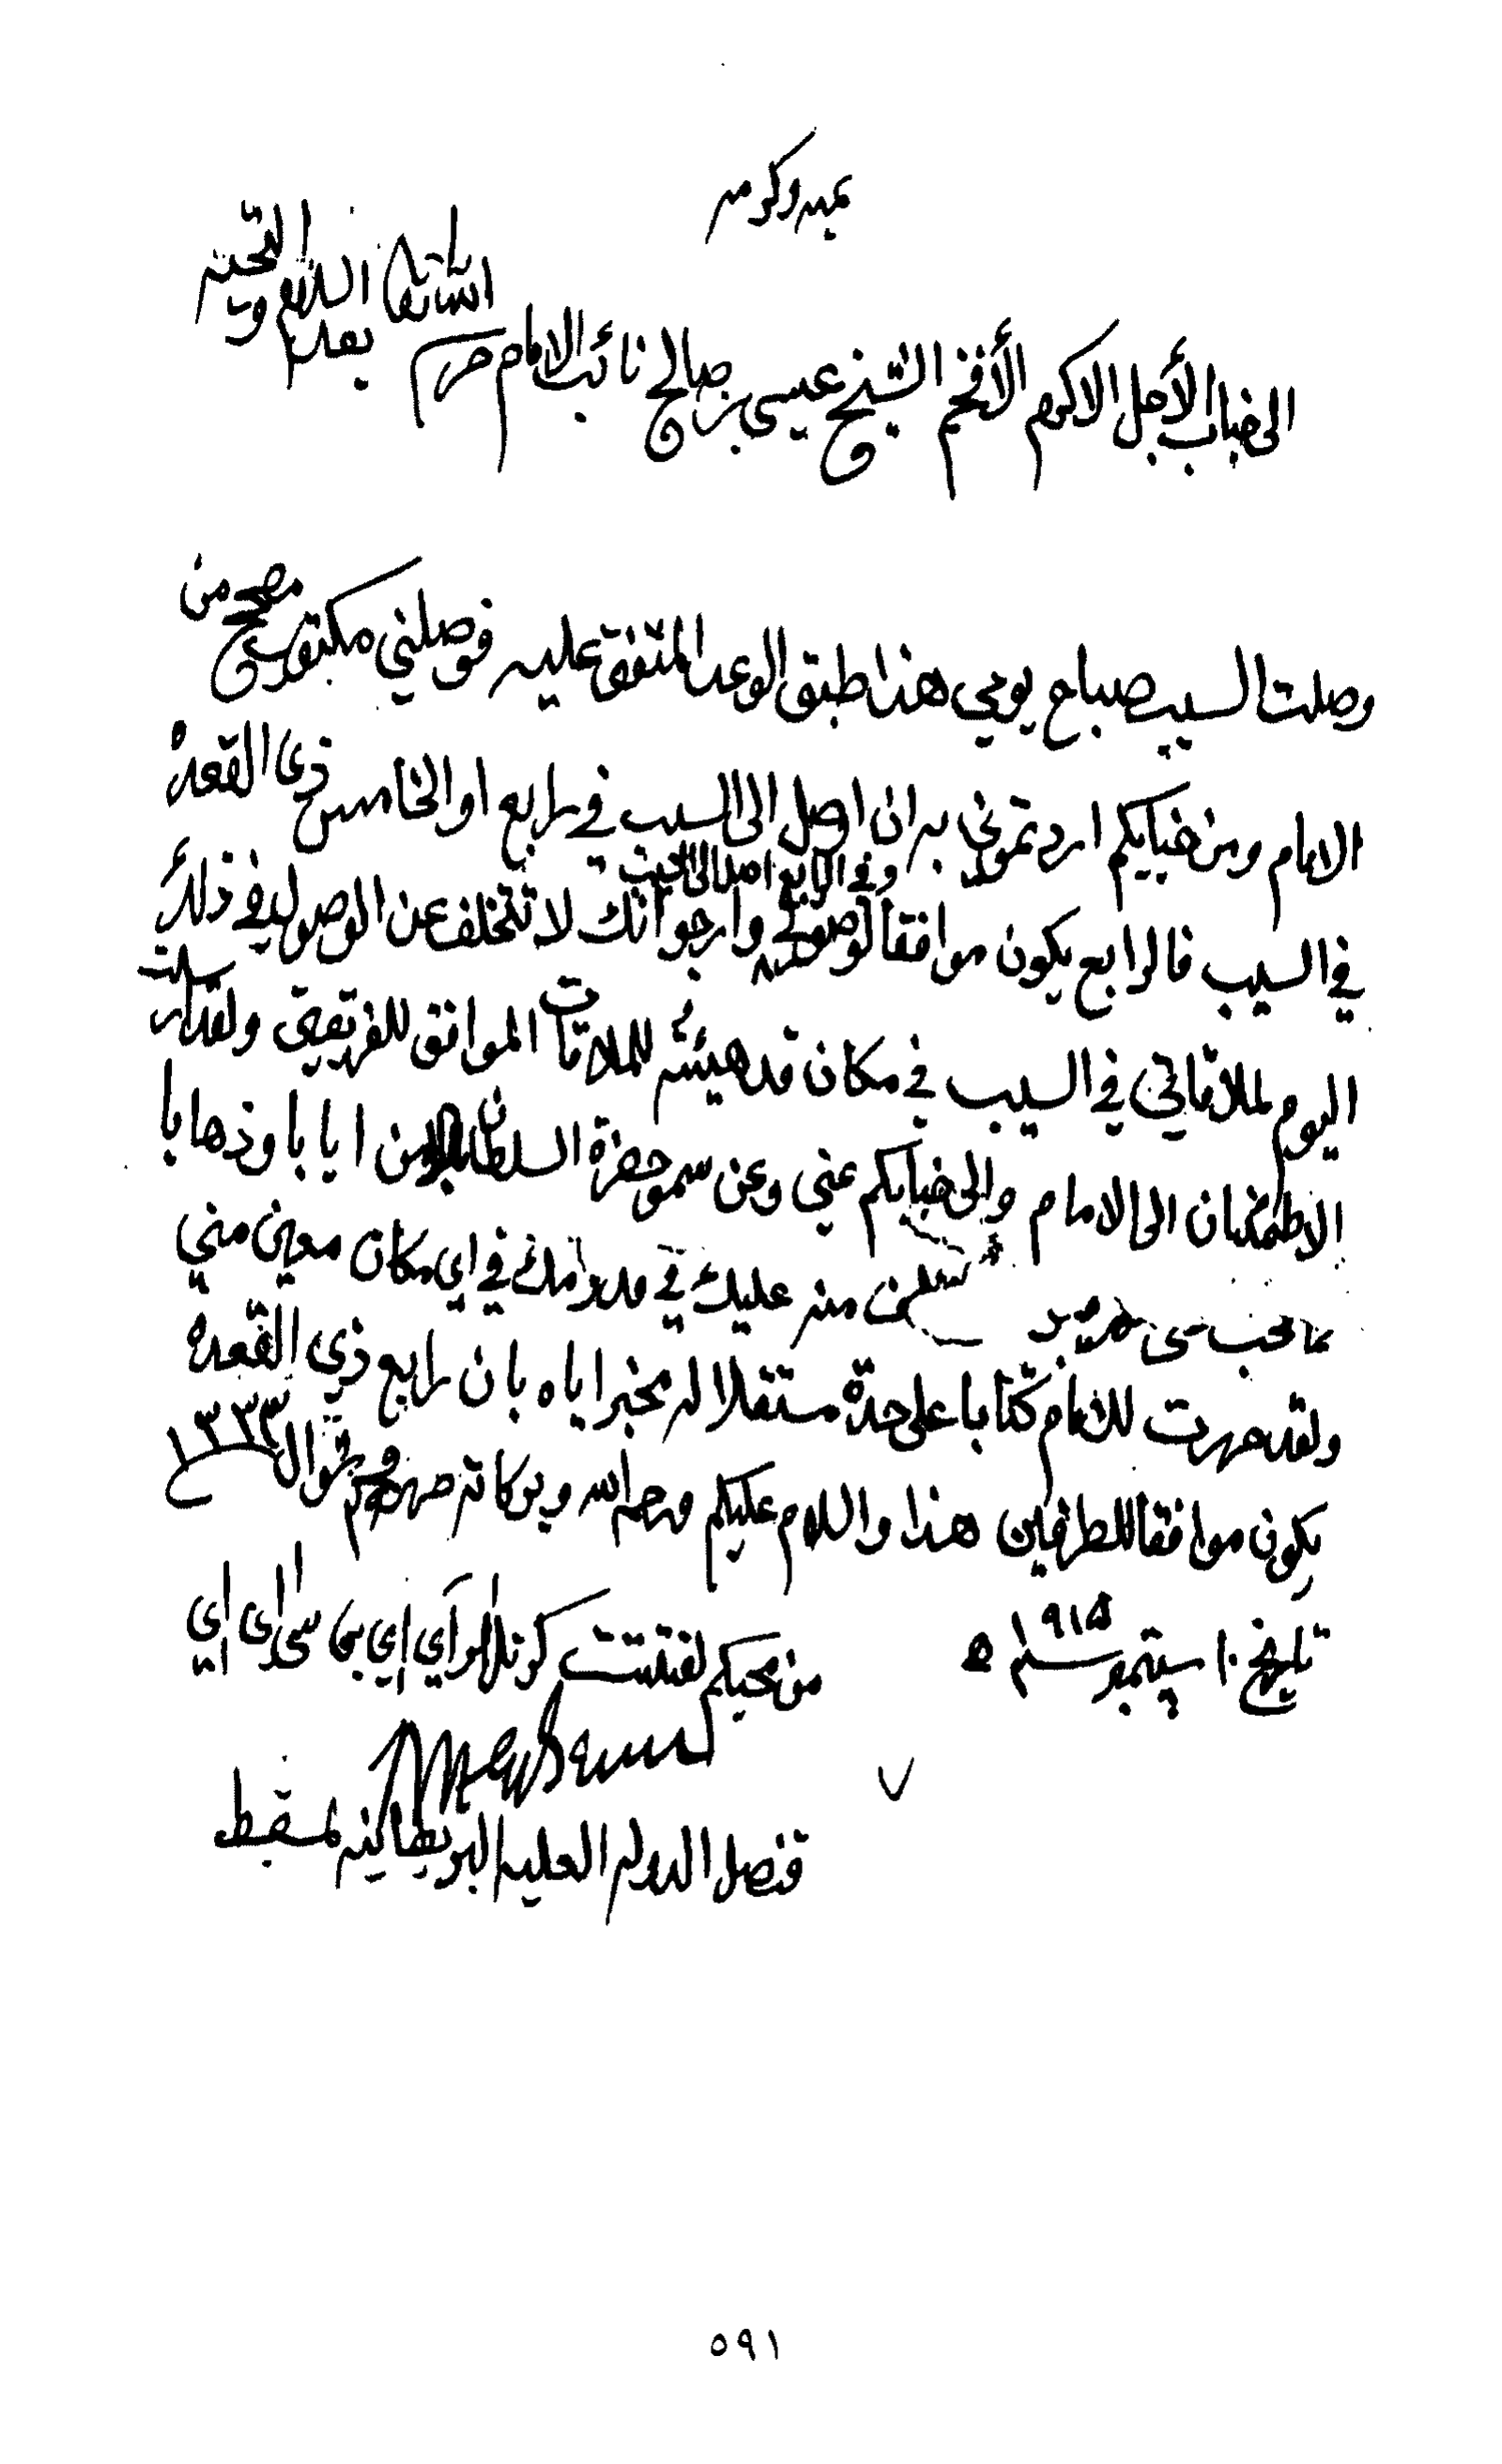 بمنه وكرمه
الى جناب الأجل الاكرم الأفخم الشيخ عيسى بن صالح نائب الامام حرسه الله تعالى
بعد السلام والتحية
وصلت السيب صباح يومي هذا طبق الوعد المتفق عليه فوصلني مكتوب من
الامام ومن جنابكم اردتموني به اني اصل الى السيب في رابع او الخامس ذى القعدة
وفي الرابع اصل الى
في السيب فالرابع يكون موافقا لوصولي وارجو انك لا تتخلف عن الوصول في ذلك
اليوم لملاقاتي في السيب في مكان قد هيئته للملاقات الموافق للفريقين ولقد ارسلت
الاطمئنان الى الامام والى جنابكم عني وعن سمو حضرة السلطان بالامن ايابا وذهابا
منه عليك في اي مكان معين مني
ولقد حررت للامام كتابا على حدة مستقلا له مخبرا اياه بان رابع ذي القعدة
يكون موافقا للطرفين هذا والسلام عليكم ورحمة الله وبركاته شوال ١٣٣٣
تاريخ ١٠ سپتمبر سنة ١٩١٥
من محبكم لفتننت كرنل آي إي بن سى اى اي
قنصل الدولة العلية البريطانية لمسقط
٥٩١